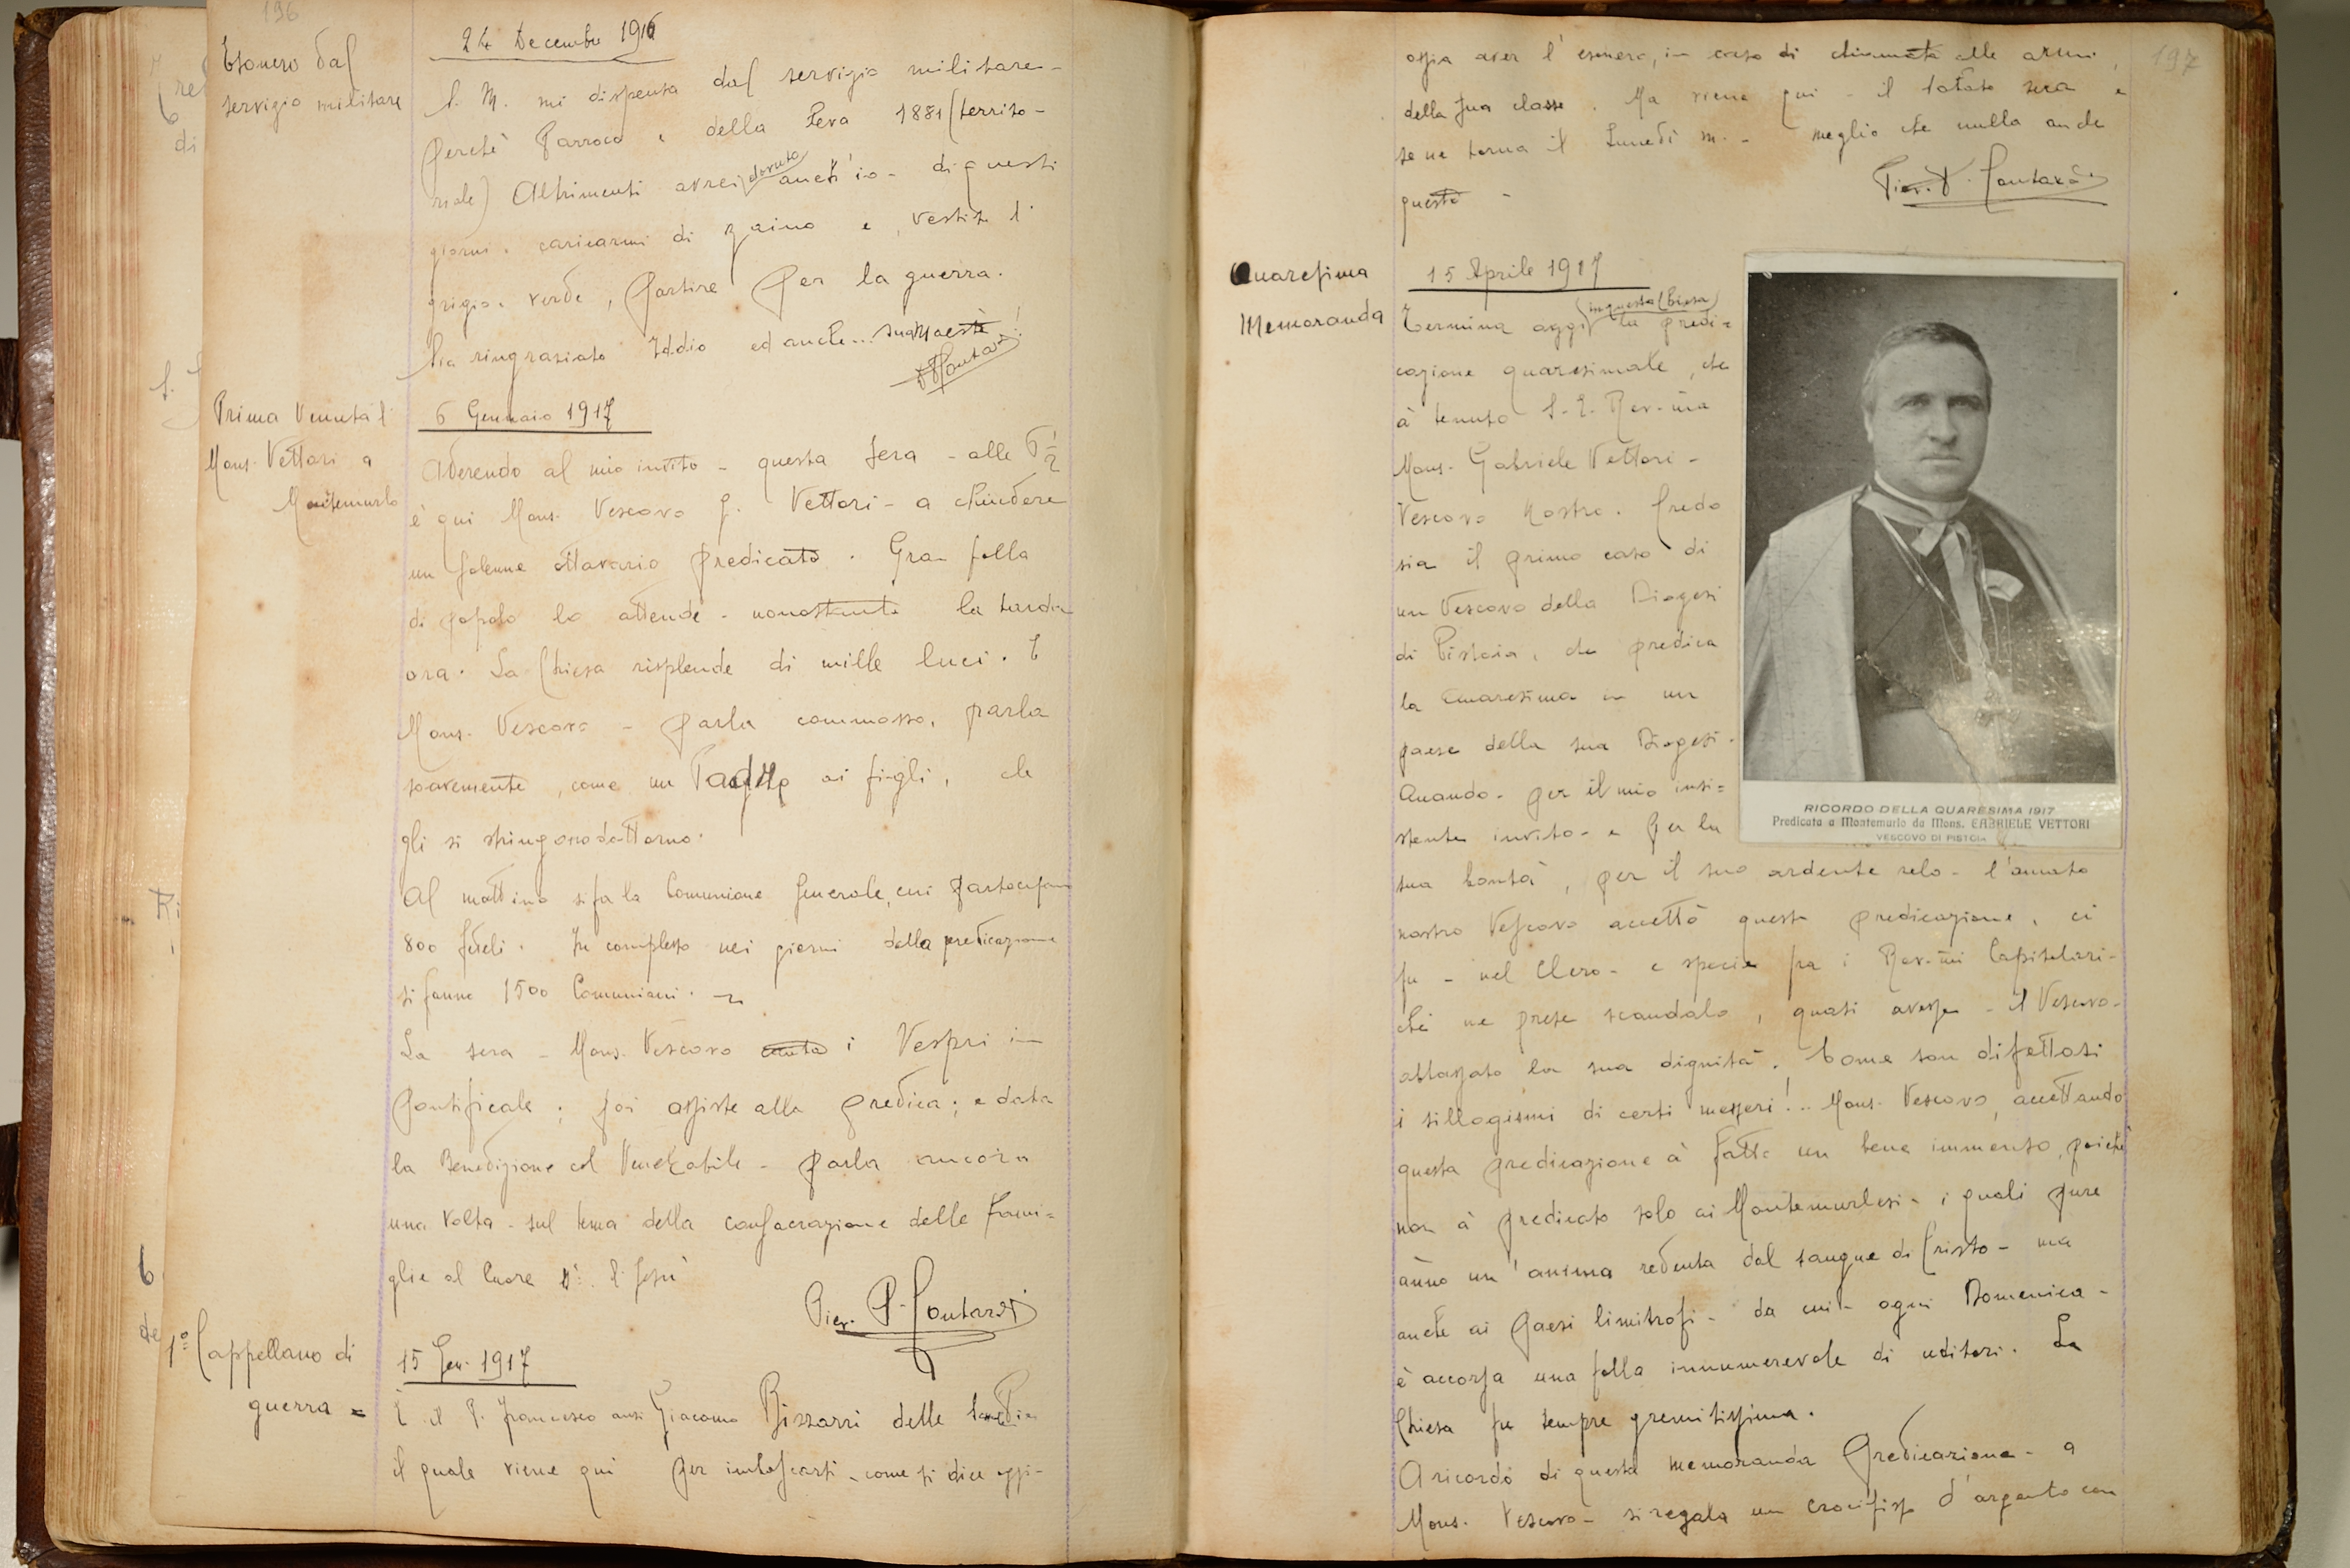 196
Esonero dal
servizio militare
24 Decembre 1916
S. M. mi dispensa dal servizio militare -
perchè Parroco e della Leva 1881 (territo-
riale) Altrimenti avrei dovuto anch'io - di questi
giorni - caricarmi di zaino e, vestito d'
grigio - verde, partire per la guerra.
Sia ringraziato Iddio ed anche... sua Maestà!
Prima Venuta di
Mons. Vettori a
Montemurlo
6 Gennaio 1917
Aderendo al mio invito - questa sera - alle 6 1/2
è qui Mons. Vescovo G. Vettori - a chiudere
un solenne ottavario predicato. Gran folla
di popolo lo attende - nonostante la tarda
ora. La Chiesa risplende di mille luci. E
Mons. Vescovo - parla commosso, parla
soavemente, come un Padre ai figli, che
gli si stringono dattorno.
Al mattino si fa la Comunione Generale, cui partecipano
800 fedeli. In complesso nei giorni della predicazione
si fanno 1500 Comunioni.
La sera - Mons. Vescovo canta i Vespri in
Pontificale; poi assiste alla predica; e data
la Benedizione col Venerabile - parla ancora
una volta - sul tema della consacrazione delle Fami=
glie al Cuore di Gesù
1º Cappellano di
guerra =
15 Gen. 1917
È il P. Francesco anzi Giacomo Bizzarri delle
il quale viene qui per imboscarsi - come si dice oggi -
197
ossia aver l'esonero, in caso di chiamata alle armi,
della sua classe. Ma viene qui - il Sabato sera e
se ne torna il Lunedì m. - meglio che nulla anche
questo -
Quaresima
Memoranda
15 Aprile 1917
Termina oggi (in questa Chiesa) la predi=
cazione quaresimale, che
à tenuto S. E. Rev.ma
Mons. Gabriele Vettori -
Vescovo Nostro. Credo
sia il primo caso di
un Vescovo della Diogesi
di Pistoia, che predica
la Quaresima in un
paese della sua Diogesi.
Quando - per il mio insi=
stente invito - e per la
sua bontà, per il suo ardente zelo - l'amato
nostro Vescovo accettò questa predicazione, ci
fu - nel Clero - e specie fra i Rev.mi Capitolari -
chi ne prese scandalo, quasi avesse - il Vescovo -
abbassato la sua dignità. Come son difettosi
i sillogismi di certi messeri!.. Mons. Vescovo, accettando
questa predicazione à fatto un bene immenso, poichè
non à predicato solo ai Montemurlesi - i quali pure
ànno un'anima redenta dal sangue di Cristo - ma
anche ai paesi limitrofi - da cui - ogni Domenica -
è accorsa una folla innumerevole di uditori. La
Chiesa fu sempre gremitissima.
A ricordo di questa memoranda Predicazione - a
Mons. Vescovo - si regala un crocifisso d'argento con
RICORDO DELLA QUARESIMA 1917
Predicata a Montemurlo da Mons. GABRIELE VETTORI
VESCOVO DI PISTOIA